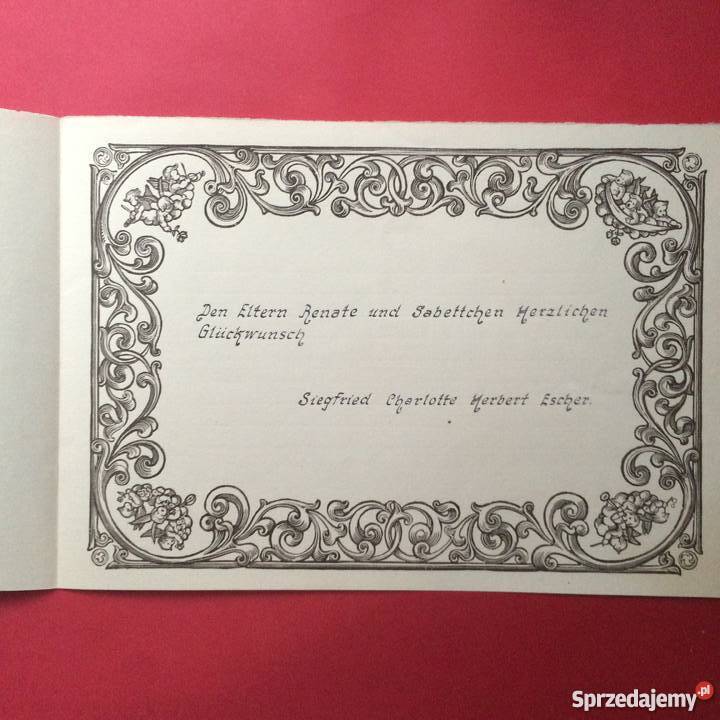 Den Eltern Renate und Sabettchen Herzlichen
Glückwunsch
Siegfried Charlotte Herbert Escher.
Sprzedajemy.pl